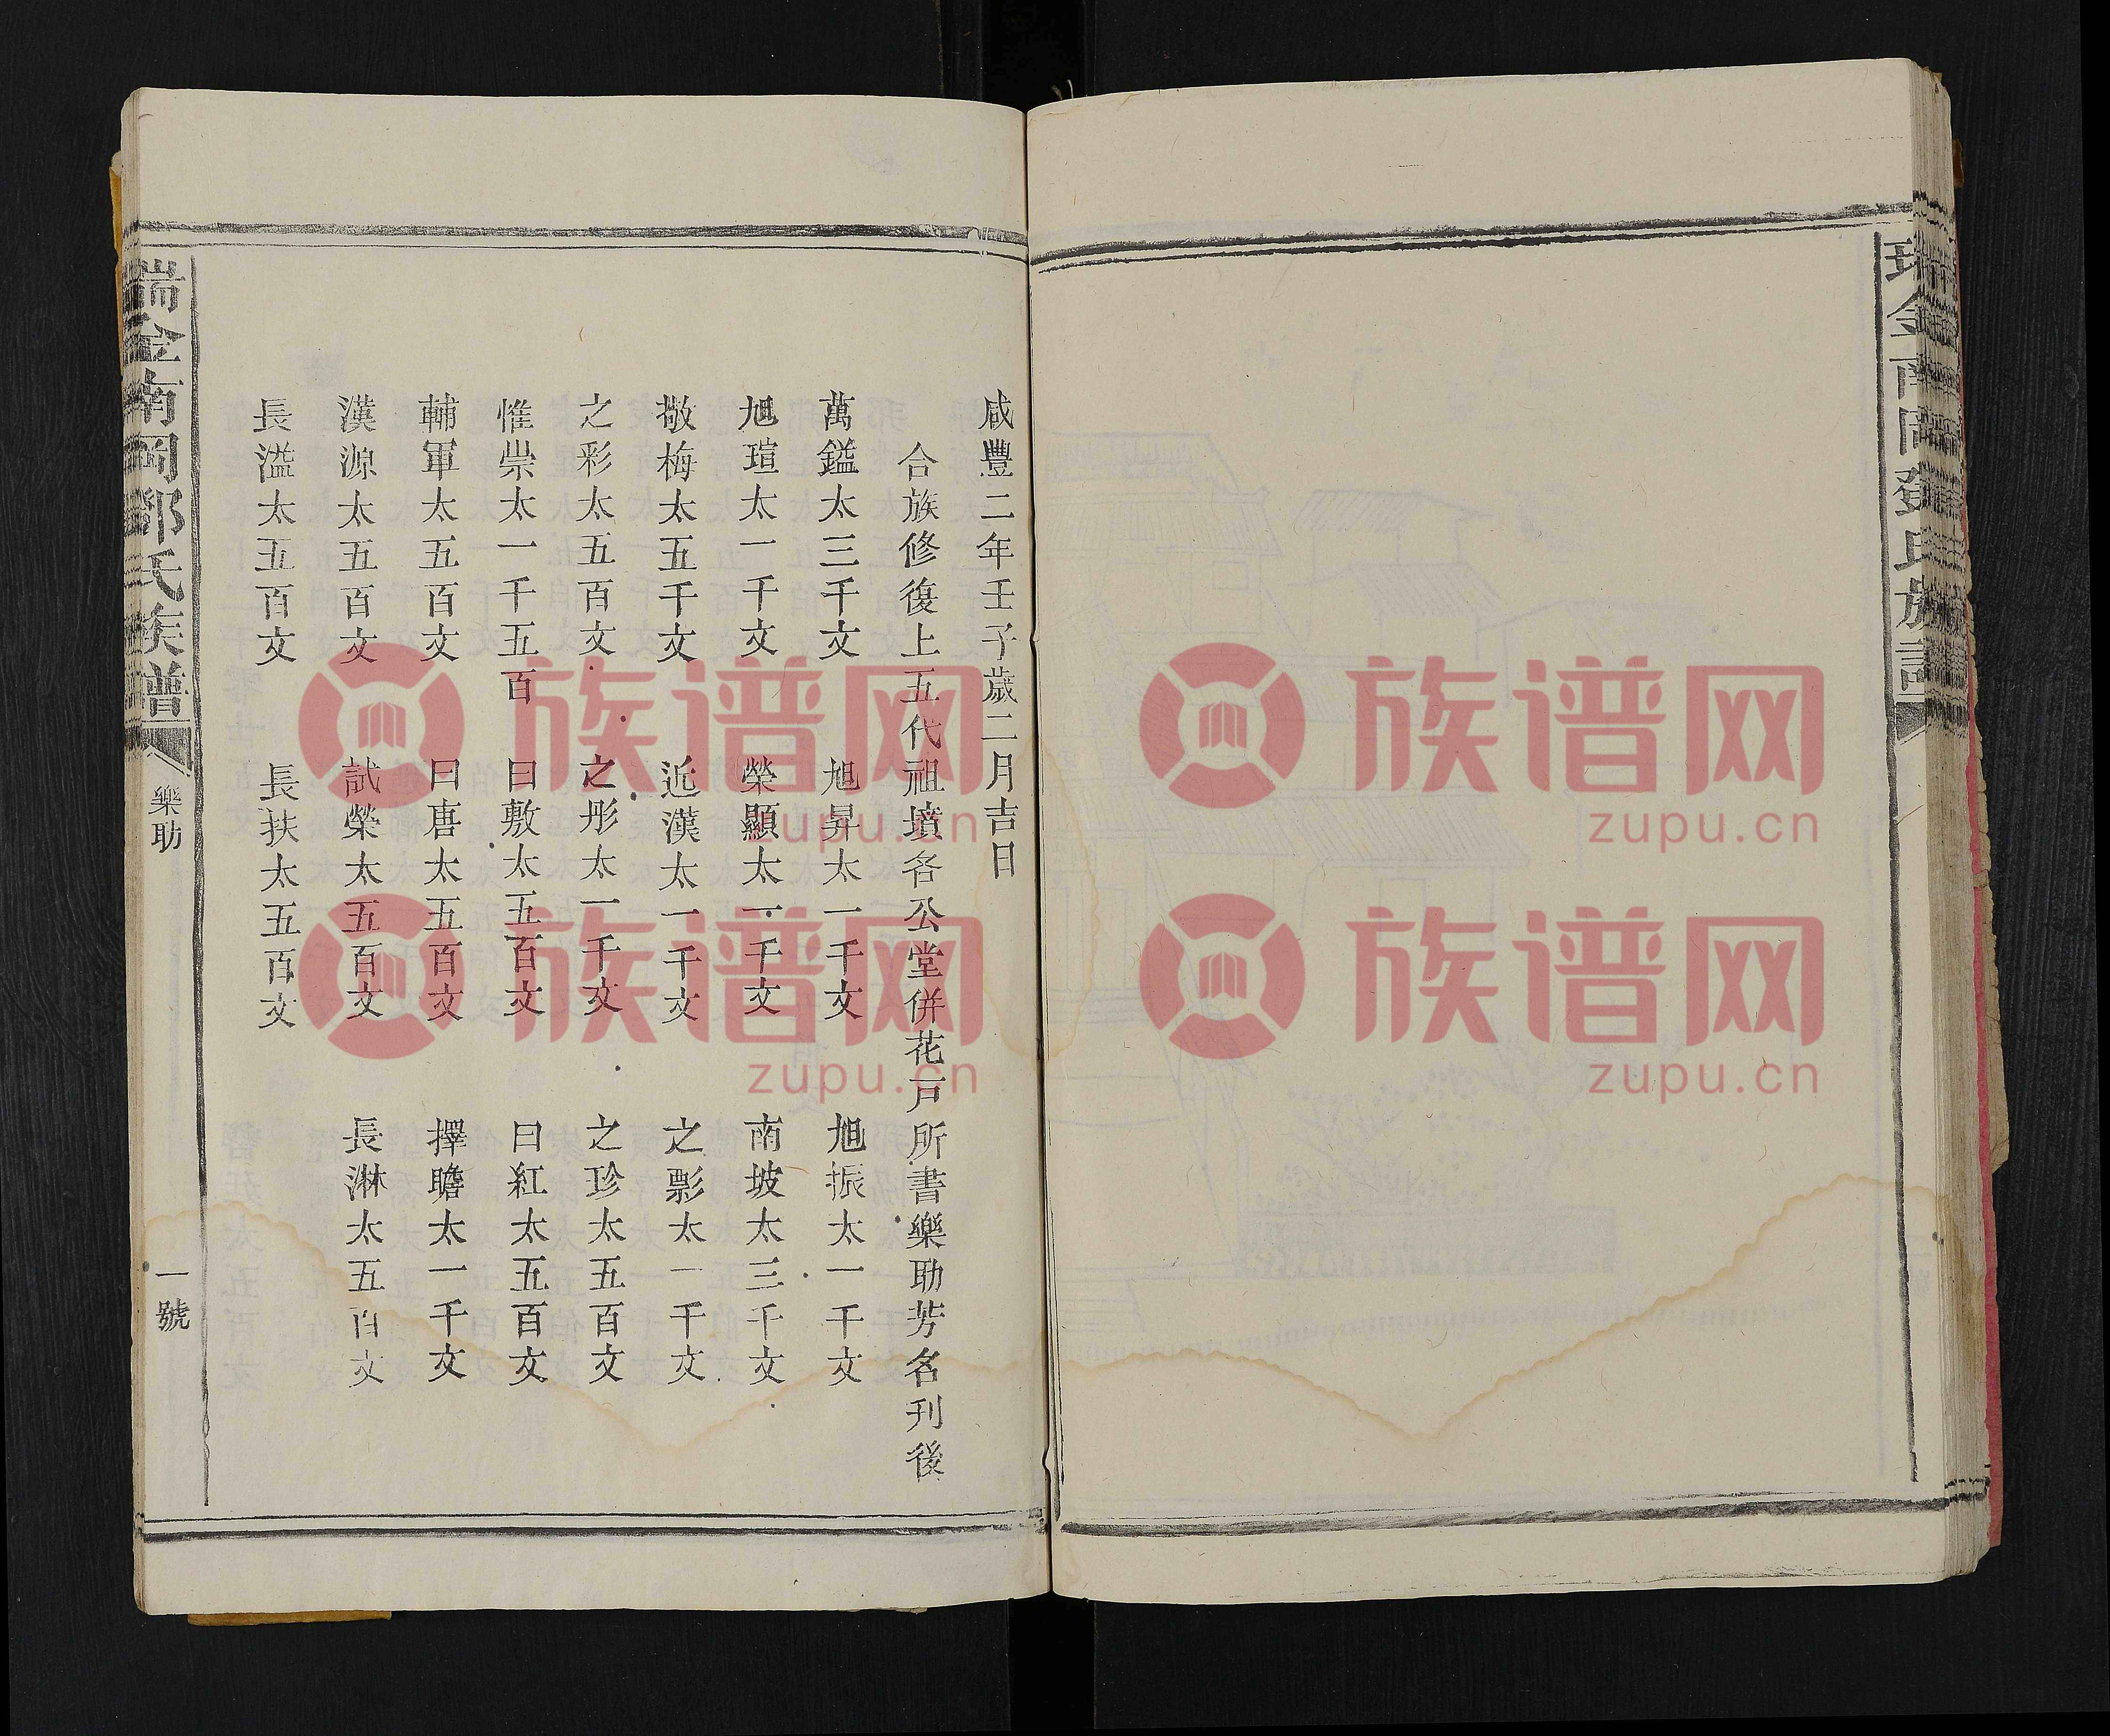 瑞金南岡鄧氏族譜
咸豐二年壬子歲二月吉日
合族修復上五代祖墳各公堂併花戸所書樂助芳名刊後
萬鎰太三千文　旭昇太一千文　旭振太一千文
旭瑄太一千文　榮顯太一千文　南坡太三千文
敬梅太五千文　近漢太一千文　之影太一千文
之彩太五百文　之彤太一千文　之珍太五百文
惟崇太一千五百　曰敷太五百文　曰紅太五百文
輔軍太五百文　曰唐太五百文　擇瞻太一千文
漢源太五百文　試榮太五百文　長淋太五百文
長溢太五百文　長扶太五百文
瑞金南岡鄧氏族譜
樂助
一號
族谱网
zupu.cn
族谱网
zupu.cn
族谱网
zupu.cn
族谱网
zupu.cn